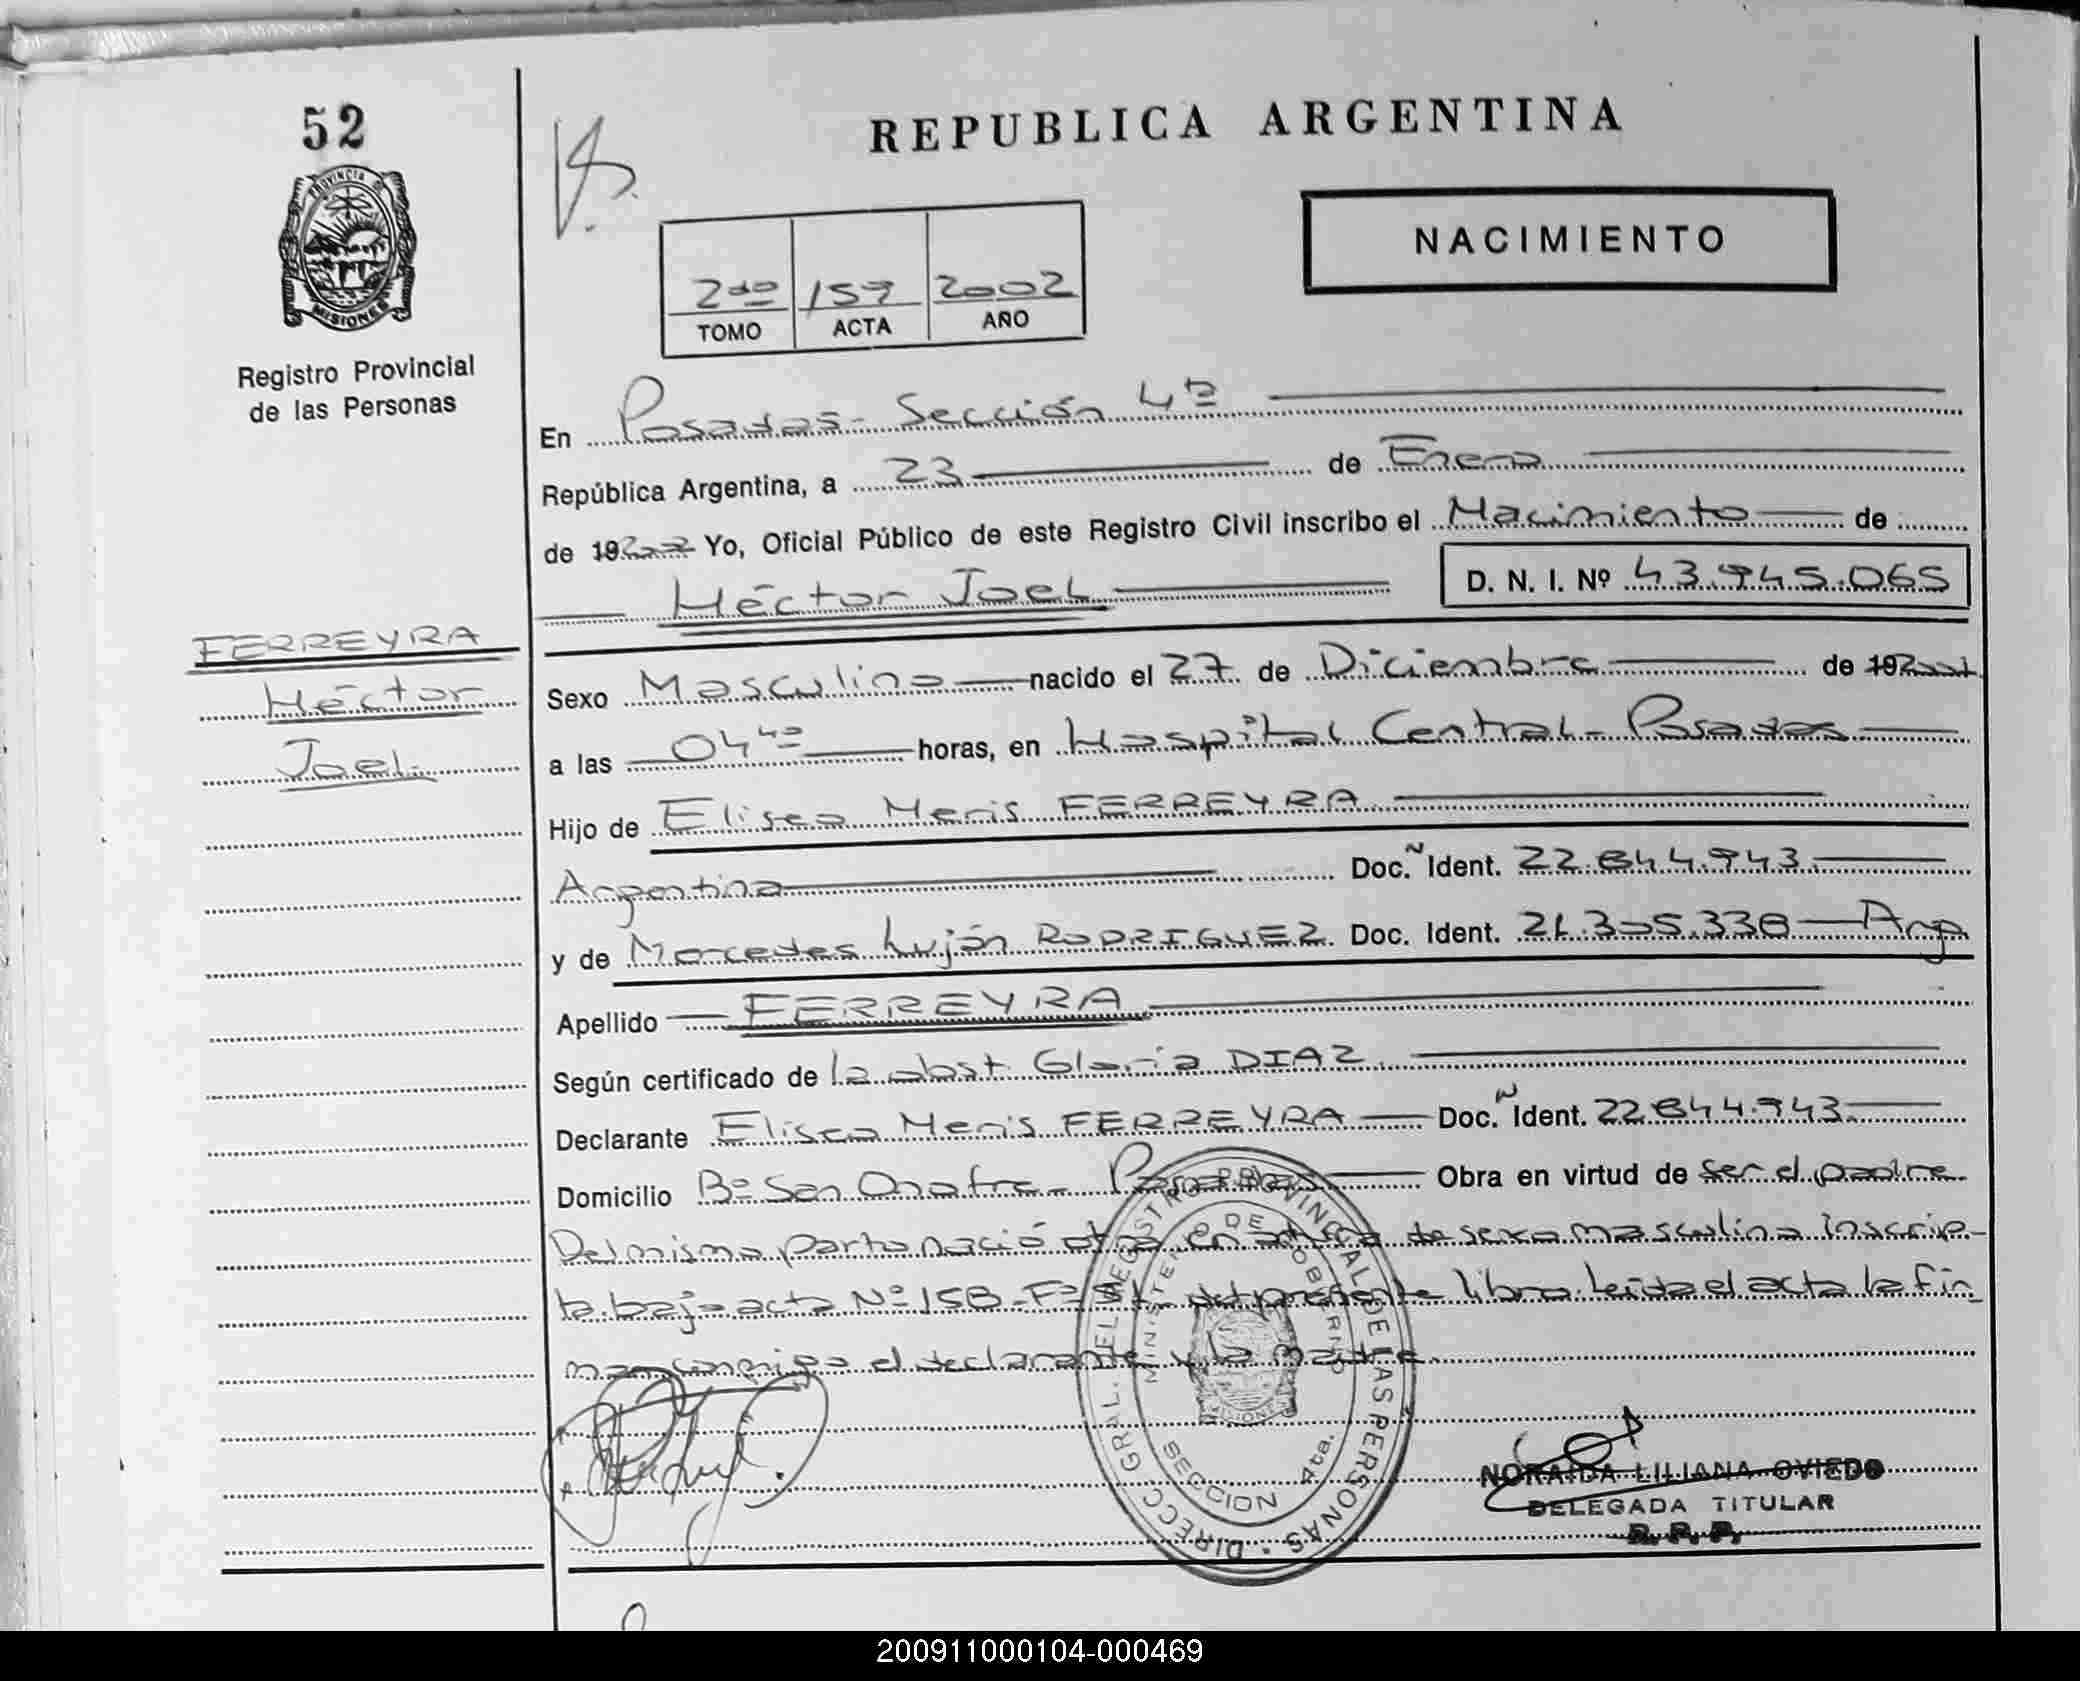 52
PROVINCIA DE
MISIONES
Registro Provincial
de las Personas
REPUBLICA ARGENTINA
NACIMIENTO
2do 159 2002
TOMO ACTA AÑO
En Posadas - Sección 4ta
República Argentina, a 23 de Enero
de 192002 Yo, Oficial Público de este Registro Civil inscribo el Nacimiento de
Héctor Joel D. N. I. Nº 43.945.065
FERREYRA
Héctor
Joel.
Sexo Masculino nacido el 27 de Diciembre de 192001
a las 04 40 horas, en Hospital Central - Posadas
Hijo de Eliseo Neris FERREYRA
Argentina Doc. Ident. 22.844.943
y de Mercedes Luján RODRIGUEZ Doc. Ident. 21.305.338 - Arg
Apellido FERREYRA
Según certificado de la obst. Gloria DIAZ
Declarante Eliseo Neris FERREYRA Doc. Ident. 22.844.943
Domicilio Bº San Onofre - Posadas Obra en virtud de ser el padre
Del mismo parto nació otra criatura de sexo masculino inscrip-
ta bajo acta Nº 158 - Fº 51 del presente libro. Leída el acta la fir-
man conmigo el declarante y la madre
DIRECC. GRAL. DEL REGISTRO PROVINCIAL DE LAS PERSONAS
MINISTERIO DE GOBIERNO
MISIONES
SECCION 4ta.
NORAIDA LILIANA OVIEDO
DELEGADA TITULAR
R. P. P.
200911000104-000469